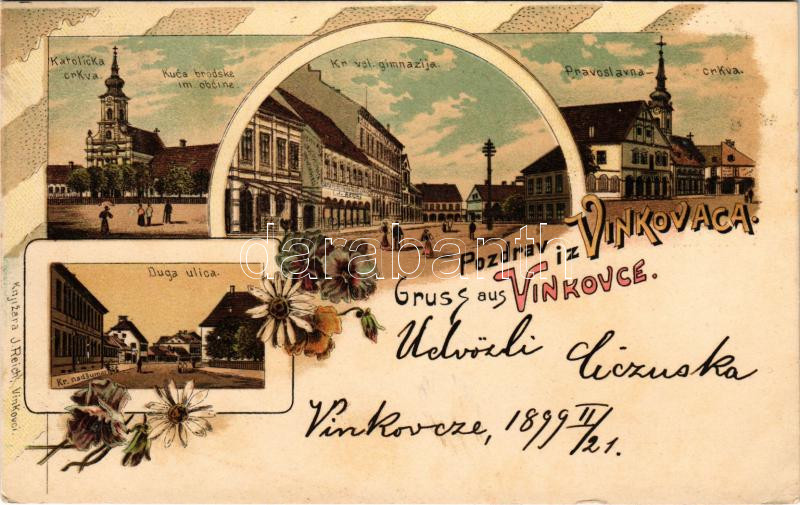 Katolička
crkva.
Kuća brodske
im. občine.
Kr. vel. gimnazija.
Pravoslavna crkva.
Pozdrav iz VINKOVACA.
Gruss aus VINKOVCE.
Duga ulica.
Kr. nadšumar
Knjižara J. Reich, Vinkovci
Üdvözli Ciczuska
Vinkovcze, 1899 II/21.
darabanth.com